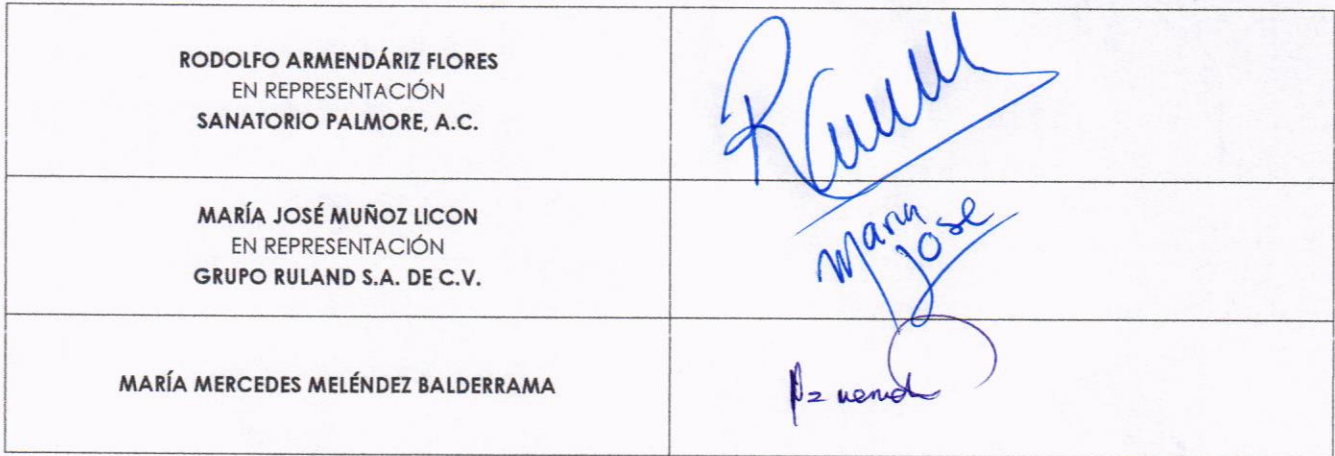 RODOLFO ARMENDÁRIZ FLORES
EN REPRESENTACIÓN
SANATORIO PALMORE, A.C.
MARÍA JOSÉ MUÑOZ LICON
EN REPRESENTACIÓN
GRUPO RULAND S.A. DE C.V.
Maria
Jose
MARÍA MERCEDES MELÉNDEZ BALDERRAMA